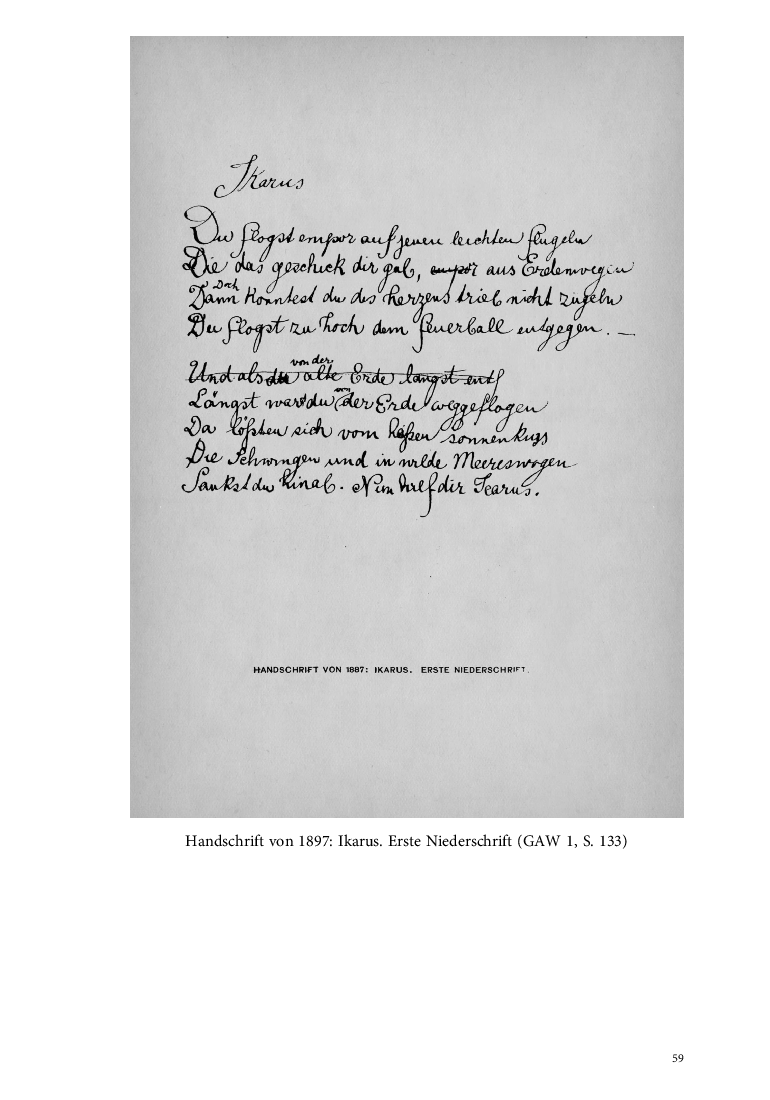 Ikarus
Du flogst empor auf jenen leichten flügeln
Die das geschick dir gab, empor aus Erdenwegen
Doch
Dann konntest du des herzens trieb nicht zügeln
Du flogst zu hoch dem feuerball entgegen. —
von der
Und als du alte Erde längst entf
von
Längst warst du der Erde weggeflogen
Da lößten sich vom heißen sonnenkuss
Die Schwingen und in wilde Meereswogen
Sankst du hinab. Nun hilf dir Icarus.
HANDSCHRIFT VON 1887: IKARUS. ERSTE NIEDERSCHRIFT.
Handschrift von 1897: Ikarus. Erste Niederschrift (GAW 1, S. 133)
59